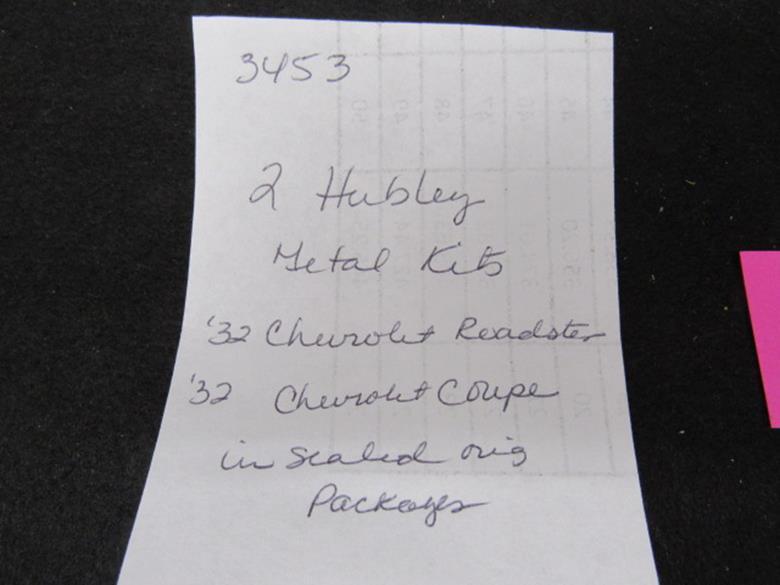 3453
2 Hubley
Metal Kits
'32 Chevrolet Roadster
'32 Chevrolet Coupe
in sealed orig
Packages